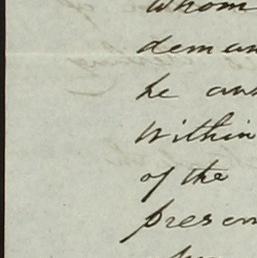 whom
deman
he
within
of the
presen